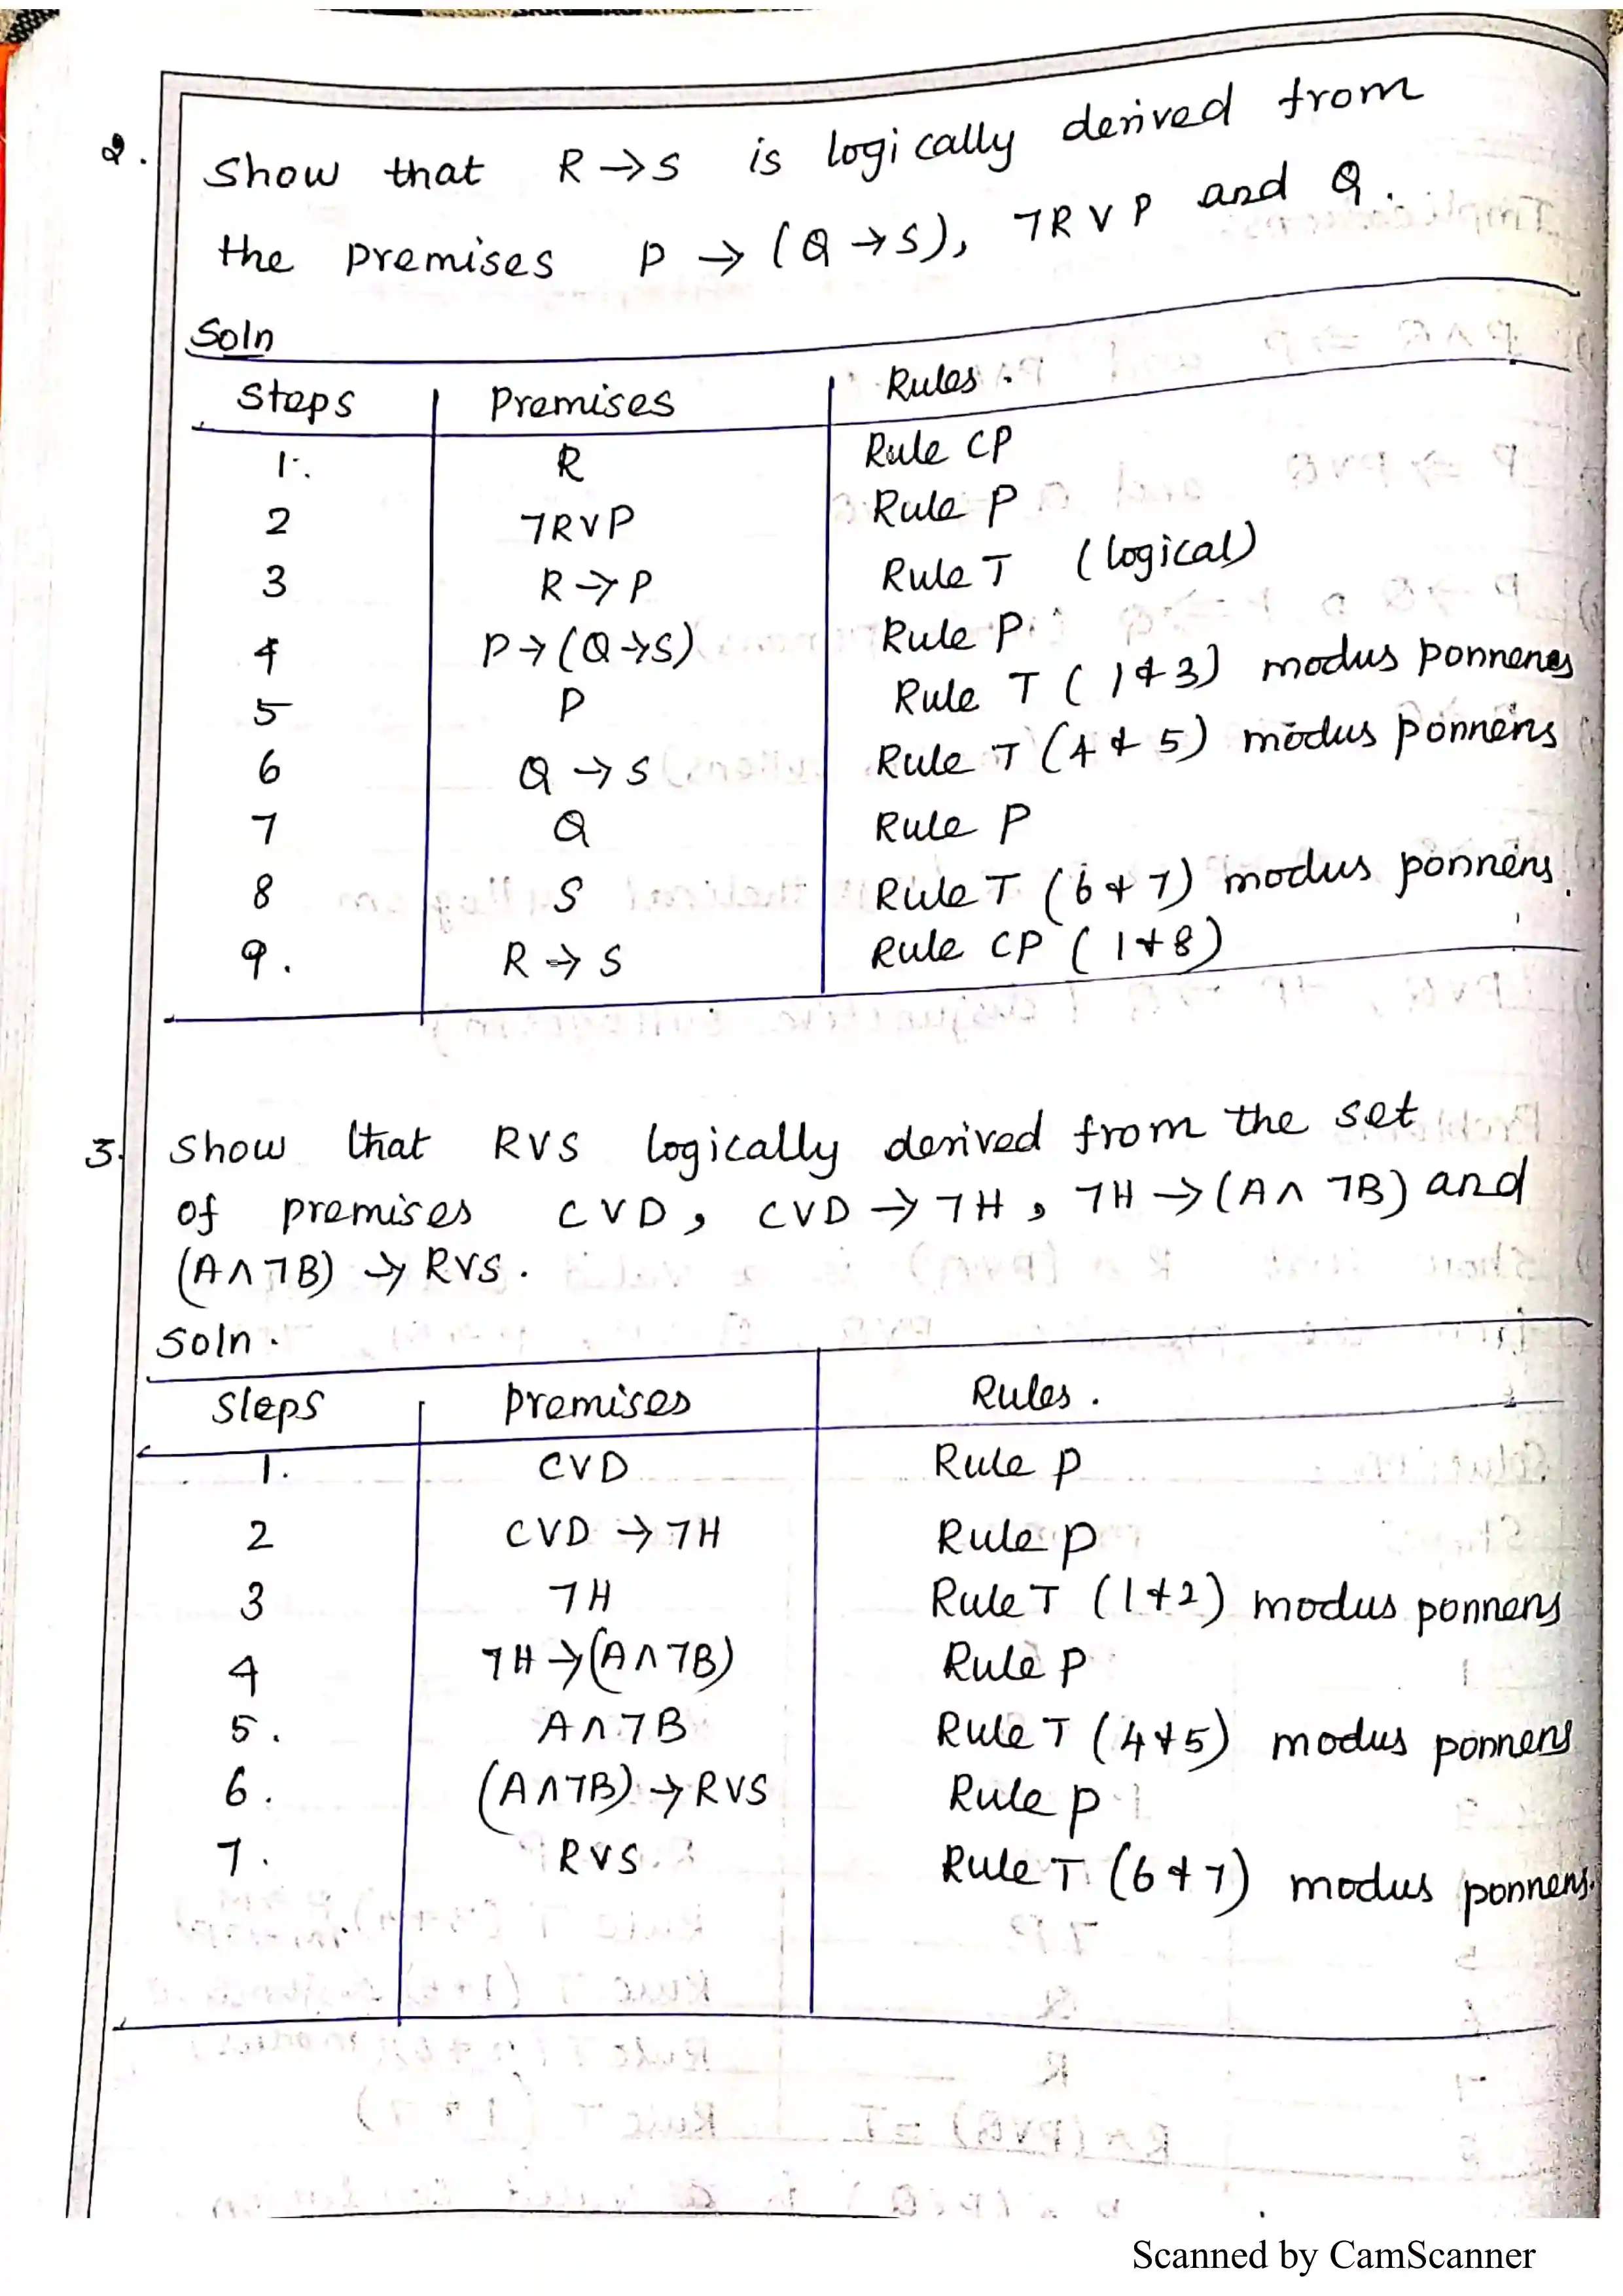 2. Show that R → S is logically derived from
the premises P → (Q → S), ¬R ∨ P and Q.
Soln
Steps Premises Rules.
1. R Rule CP
2 ¬R∨P Rule P
3 R → P Rule T (logical)
4 P → (Q → S) Rule P
5 P Rule T (1 & 3) modus ponnens
6 Q → S Rule T (4 & 5) modus ponnens
7 Q Rule P
8 S Rule T (6 & 7) modus ponnens
9. R → S Rule CP (1 & 8)
3. Show that R∨S logically derived from the set
of premises C∨D, C∨D → ¬H, ¬H → (A∧ ¬B) and
(A∧¬B) → R∨S.
Soln.
Steps Premises Rules.
1. C∨D Rule P
2 C∨D → ¬H Rule P
3 ¬H Rule T (1 & 2) modus ponnens
4 ¬H → (A∧¬B) Rule P
5. A∧¬B Rule T (4 & 5) modus ponnens
6. (A∧¬B) → R∨S Rule P
7. R∨S Rule T (6 & 7) modus ponnens.
Scanned by CamScanner